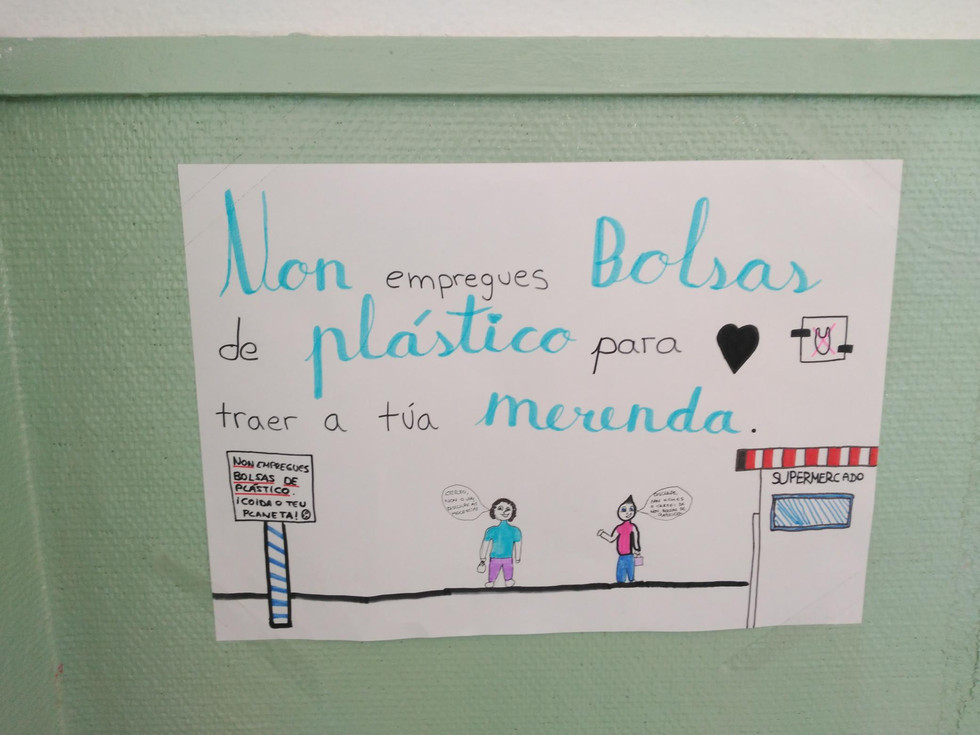 Non empregues Bolsas
de plástico para
traer a túa merenda.
NON EMPREGUES
BOLSAS DE
PLÁSTICO.
¡COIDA O TEU
PLANETA!
SUPERMERCADO